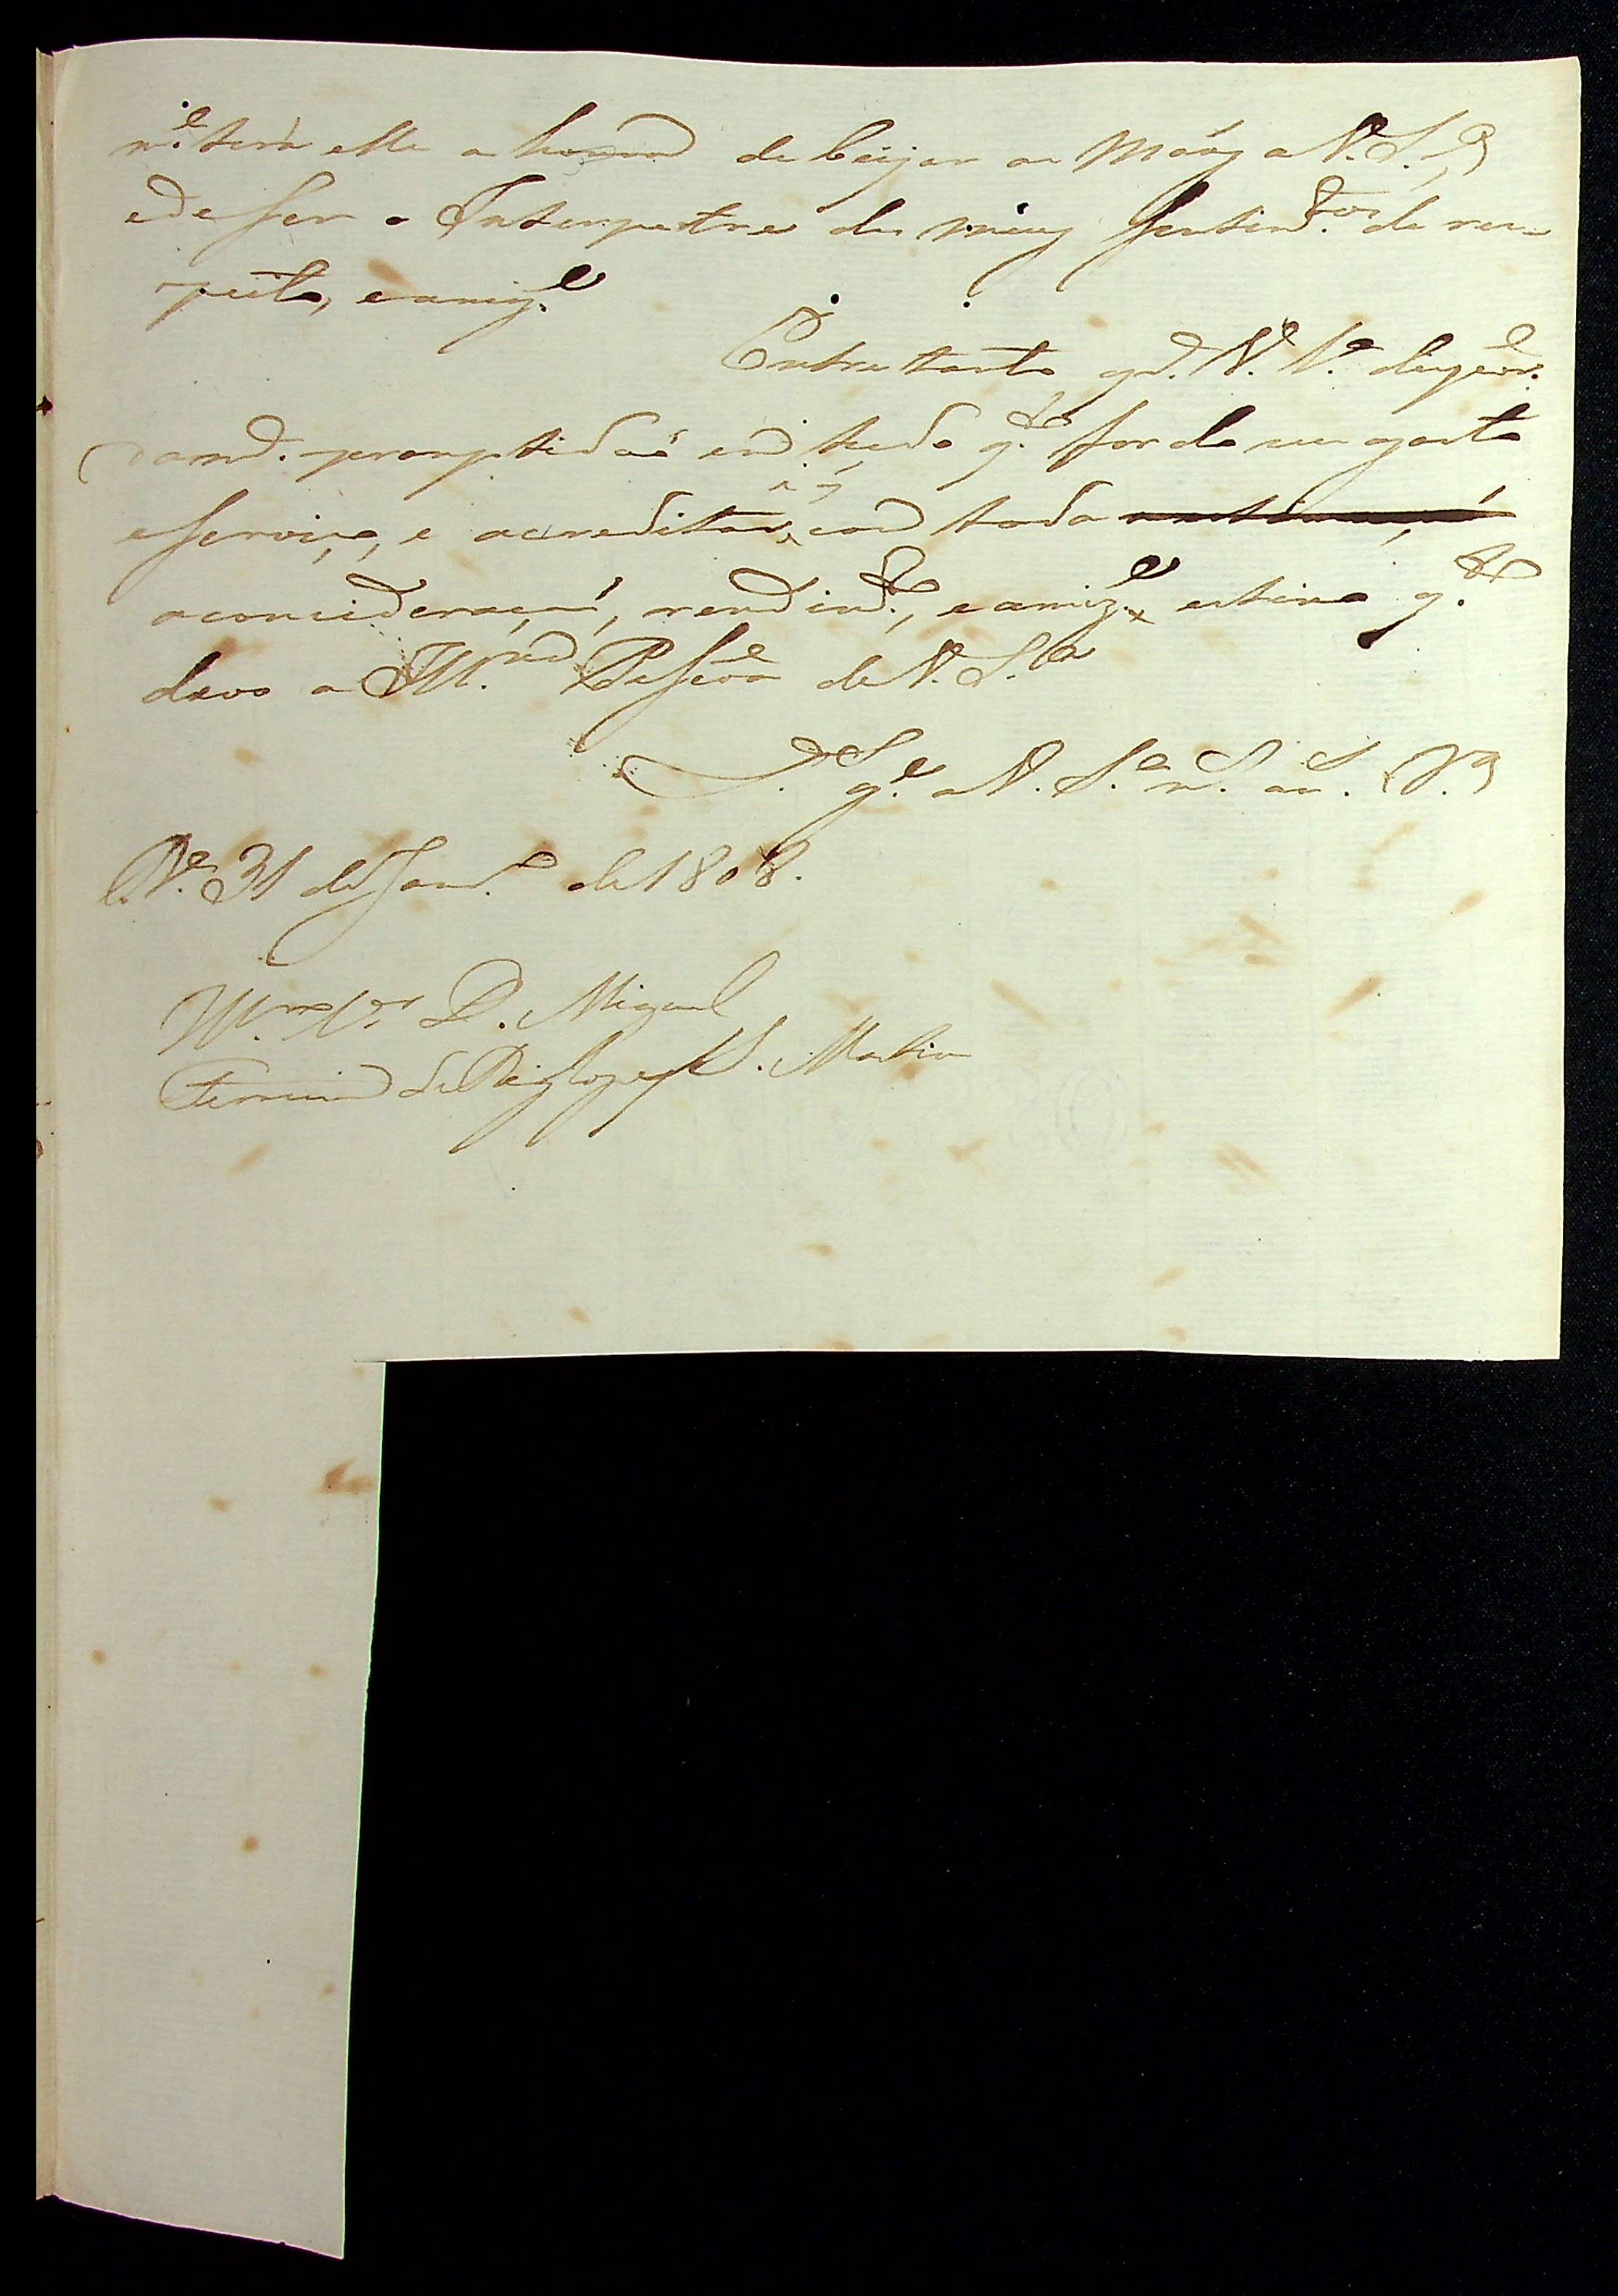 n.e terá elle a honra de beijar as Mãoz a V. S.a
e de ser o Interpetre dos meuz sentim.tos de res-
peito, e amiz.e
Entretanto q.do V. S.a
promptidaõ em tudo q.to for do seu gosto
e serviço, e acreditar, com toda
aconcideraçaõ, rendim.to, e amiz.e estimo q.to
devo a Ill.ma Pessoa de V. S.a
D.s g.e a V. S.a m.s an.s
31 de Janr.o de 1808.
Ill.mo S.or D. Miguel
Ferreira de Riglos y S. Martin